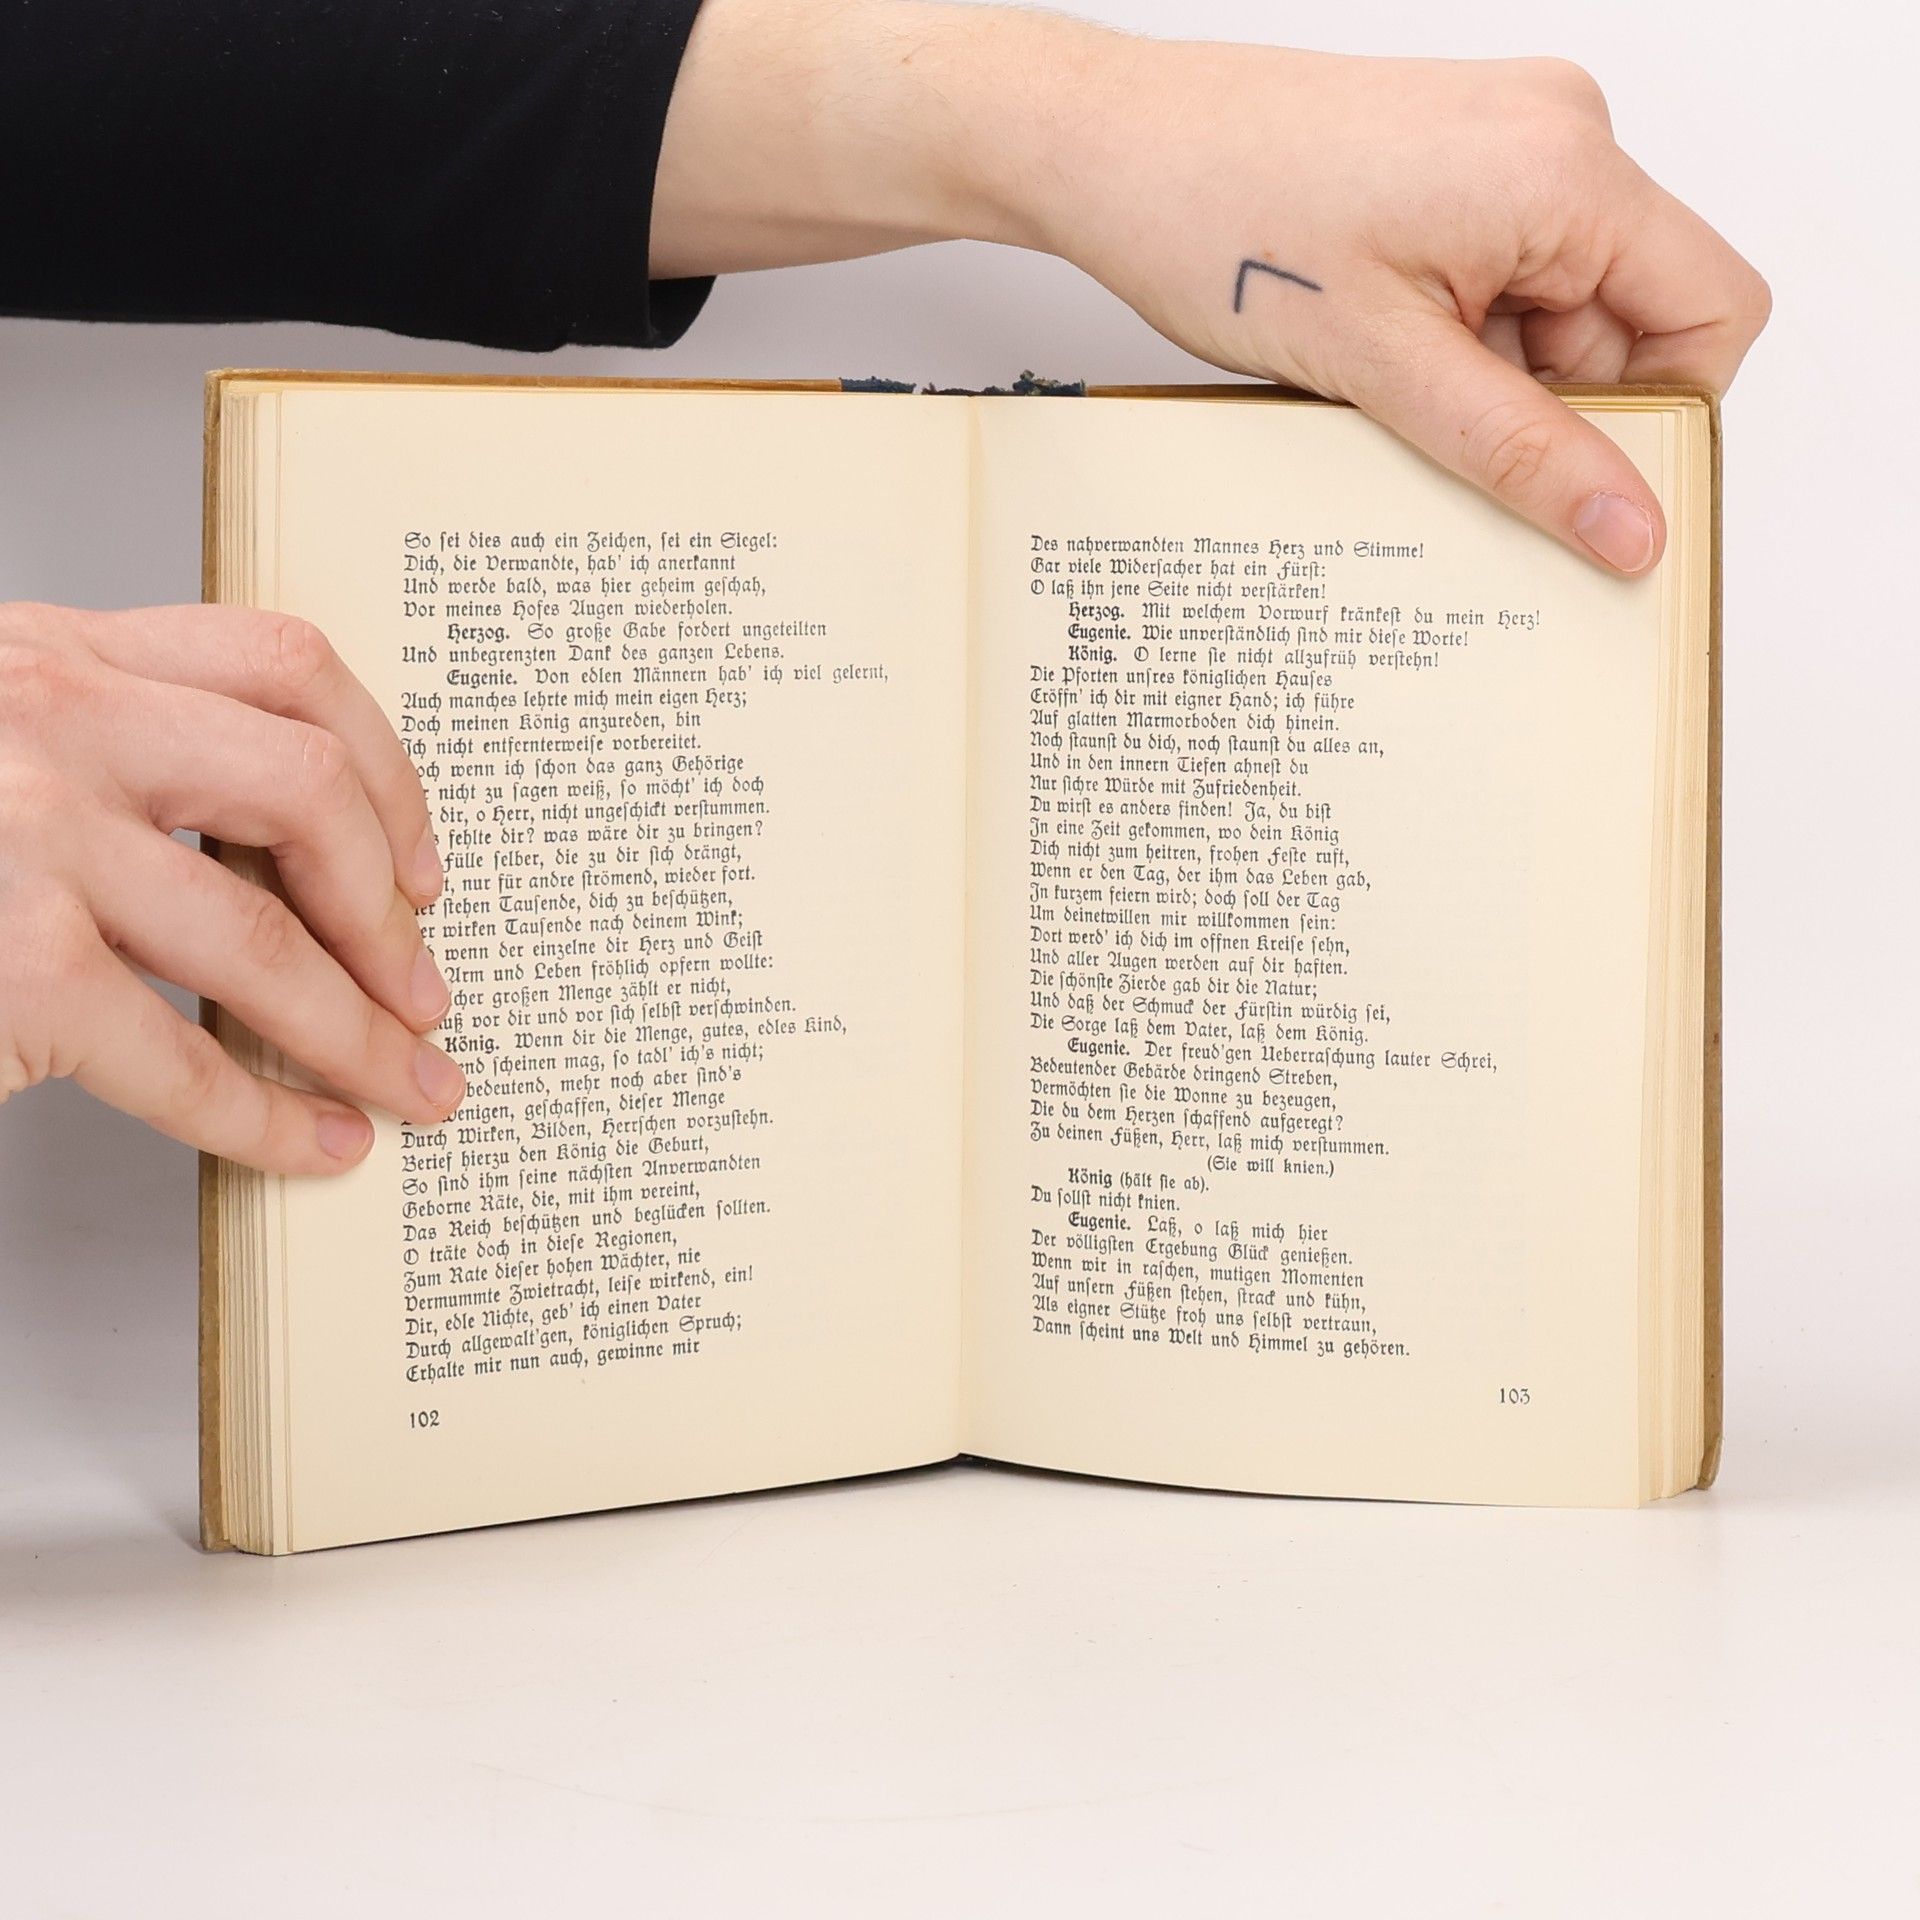 So sei dies auch ein Zeichen, sei ein Siegel:
Dich, die Verwandte, hab' ich anerkannt
Und werde bald, was hier geheim geschah,
Vor meines Hofes Augen wiederholen.
Herzog. So große Gabe fordert ungeteilten
Und unbegrenzten Dank des ganzen Lebens.
Eugenie. Von edlen Männern hab' ich viel gelernt,
Auch manches lehrte mich mein eigen Herz;
Doch meinen König anzureden, bin
Ich nicht entfernterweise vorbereitet.
och wenn ich schon das ganz Gehörige
nicht zu sagen weiß, so möcht' ich doch
dir, o Herr, nicht ungeschickt verstummen.
fehlte dir? was wäre dir zu bringen?
Fülle selber, die zu dir sich drängt,
t, nur für andre strömend, wieder fort.
er stehen Tausende, dich zu beschützen,
er wirken Tausende nach deinem Wink;
wenn der einzelne dir Herz und Geist
Arm und Leben fröhlich opfern wollte:
lcher großen Menge zählt er nicht,
muß vor dir und vor sich selbst verschwinden.
König. Wenn dir die Menge, gutes, edles Kind,
end scheinen mag, so tadl' ich's nicht;
bedeutend, mehr noch aber sind's
wenigen, geschaffen, dieser Menge
Durch Wirken, Bilden, Herrschen vorzustehn.
Berief hierzu den König die Geburt,
So sind ihm seine nächsten Anverwandten
Geborne Räte, die, mit ihm vereint,
Das Reich beschützen und beglücken sollten.
O träte doch in diese Regionen,
Zum Rate dieser hohen Wächter, nie
Vermummte Zwietracht, leise wirkend, ein!
Dir, edle Nichte, geb' ich einen Vater
Durch allgewalt'gen, königlichen Spruch;
Erhalte mir nun auch, gewinne mir
102
Des nahverwandten Mannes Herz und Stimme!
Gar viele Widersacher hat ein Fürst:
O laß ihn jene Seite nicht verstärken!
Herzog. Mit welchem Vorwurf kränkest du mein Herz!
Eugenie. Wie unverständlich sind mir diese Worte!
König. O lerne sie nicht allzufrüh verstehn!
Die Pforten unsres königlichen Hauses
Eröffn' ich dir mit eigner Hand; ich führe
Auf glatten Marmorboden dich hinein.
Noch staunst du dich, noch staunst du alles an,
Und in den innern Tiefen ahnest du
Nur sichre Würde mit Zufriedenheit.
Du wirst es anders finden! Ja, du bist
In eine Zeit gekommen, wo dein König
Dich nicht zum heitren, frohen Feste ruft,
Wenn er den Tag, der ihm das Leben gab,
In kurzem feiern wird; doch soll der Tag
Um deinetwillen mir willkommen sein:
Dort werd' ich dich im offnen Kreise sehn,
Und aller Augen werden auf dir haften.
Die schönste Zierde gab dir die Natur;
Und daß der Schmuck der Fürstin würdig sei,
Die Sorge laß dem Vater, laß dem König.
Eugenie. Der freud'gen Ueberraschung lauter Schrei,
Bedeutender Gebärde dringend Streben,
Vermöchten sie die Wonne zu bezeugen,
Die du dem Herzen schaffend aufgeregt?
Zu deinen Füßen, Herr, laß mich verstummen.
(Sie will knien.)
König (hält sie ab).
Du sollst nicht knien.
Eugenie. Laß, o laß mich hier
Der völligsten Ergebung Glück genießen.
Wenn wir in raschen, mutigen Momenten
Auf unsern Füßen stehen, strack und kühn,
Als eigner Stütze froh uns selbst vertraun,
Dann scheint uns Welt und Himmel zu gehören.
103